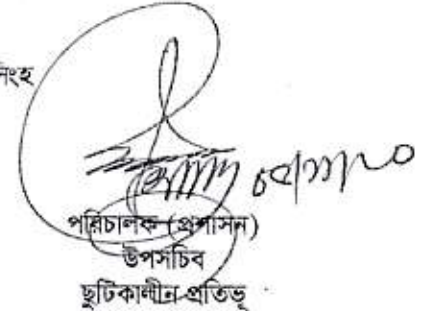 িংহ
পরিচালক (প্রশাসন)
উপসচিব
ছুটিকালীন প্রতিভূ